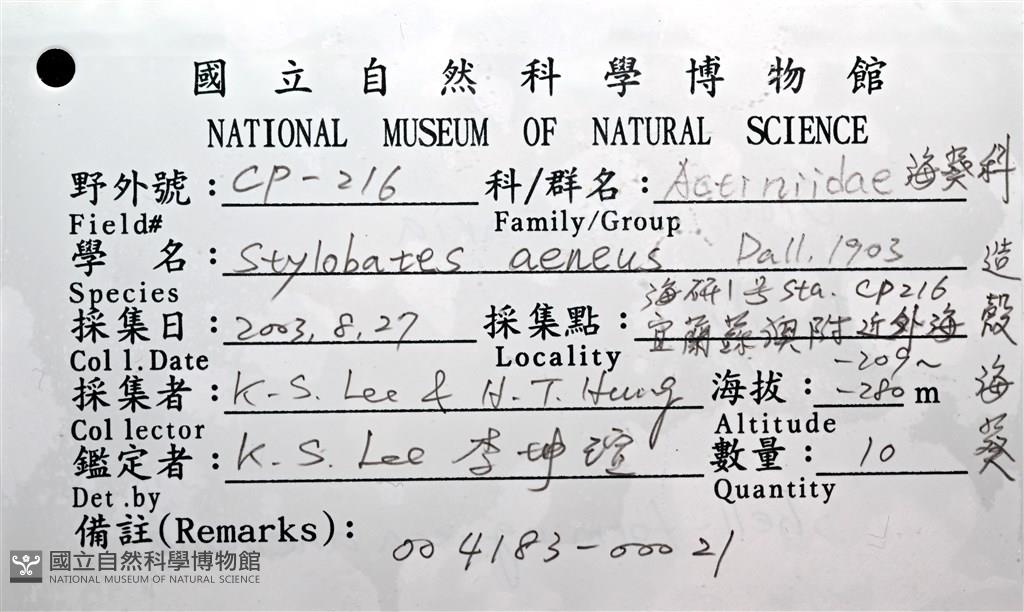 國立自然科學博物館
NATIONAL MUSEUM OF NATURAL SCIENCE
野外號：CP-216 科/群名：Actiniidae 海葵科
Field# Family/Group
學 名：Stylobates aeneus Dall. 1903
Species 海研1号 Sta. CP216
採集日：2003.8.27 採集點：宜蘭蘇澳附近外海
Coll.Date Locality -209~
採集者：K-S. Lee & H-T. Hung 海拔：-280 m
Collector Altitude
鑑定者：K.S. Lee 李坤瑄 數量：10
Det.by Quantity
造殼海葵
備註(Remarks)：
004183-00021
國立自然科學博物館
NATIONAL MUSEUM OF NATURAL SCIENCE